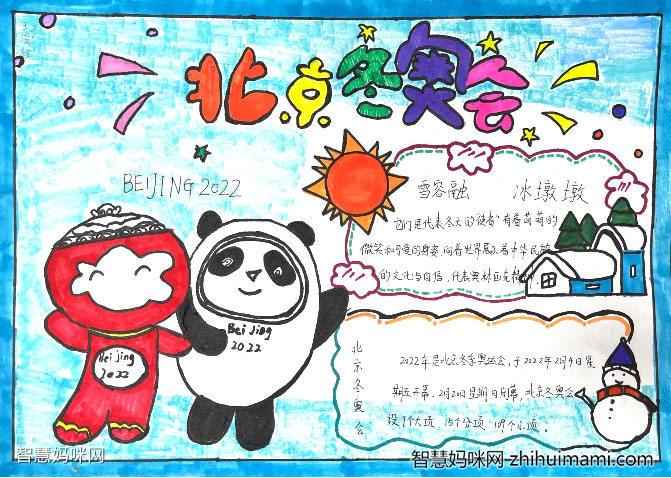 北京冬奥会
BEIJING 2022
雪容融 冰墩墩
它们是代表冬天的使者"有着萌萌的
微笑和可爱的身姿,向着世界展示着中华民族
的文化与自信,代表奥林匹克精神
Beijing
2022
Bei jing
2022
北京冬奥会
2022年是北京冬季奥运会,于2022年2月4日星
期五开幕,2月20日星期日闭幕,北京冬奥会
设7个大项 15个分项 109个小项。
智慧妈咪网
智慧妈咪网 zhihuimami.com